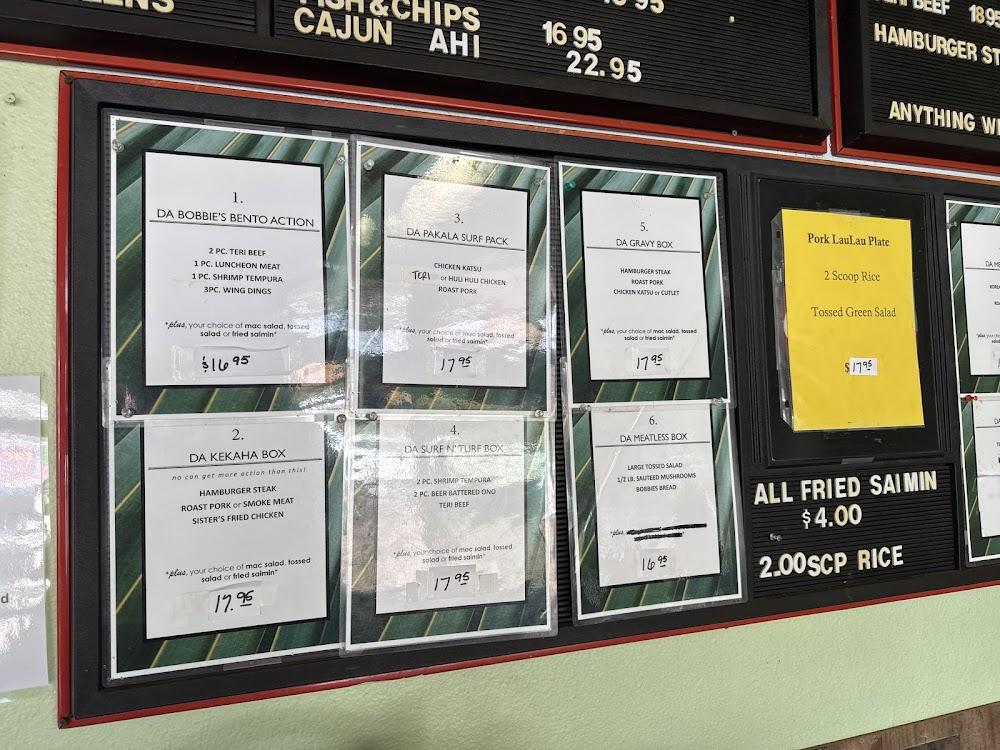 FISH & CHIPS 16 95
CAJUN AHI 22.95
BEEF 18 95
HAMBURGER
ANYTHING
1.
DA BOBBIE'S BENTO ACTION
2 PC. TERI BEEF
1 PC. LUNCHEON MEAT
1 PC. SHRIMP TEMPURA
3PC. WING DINGS
*plus, your choice of mac salad, tossed
salad or fried saimin*
$16 95
2.
DA KEKAHA BOX
no can get more action than this!
HAMBURGER STEAK
ROAST PORK or SMOKE MEAT
SISTER'S FRIED CHICKEN
*plus, your choice of mac salad, tossed
salad or fried saimin*
17.95
3.
DA PAKALA SURF PACK
CHICKEN KATSU
TERI or HULI HULI CHICKEN
ROAST PORK
*plus, your choice of mac salad, tossed
salad or fried saimin*
17 95
4.
DA SURF N' TURF BOX
2 PC. SHRIMP TEMPURA
2 PC. BEER BATTERED ONO
TERI BEEF
*plus, your choice of mac salad, tossed
salad or fried saimin*
17 95
5.
DA GRAVY BOX
HAMBURGER STEAK
ROAST PORK
CHICKEN KATSU or CUTLET
*plus, your choice of mac salad, tossed
salad or fried saimin*
17 95
6.
DA MEATLESS BOX
LARGE TOSSED SALAD
1/2 LB. SAUTEED MUSHROOMS
BOBBIES BREAD
*plus,
16 95
Pork LauLau Plate
2 Scoop Rice
Tossed Green Salad
$17 95
ALL FRIED SAIMIN
$4.00
2.00 SCP RICE